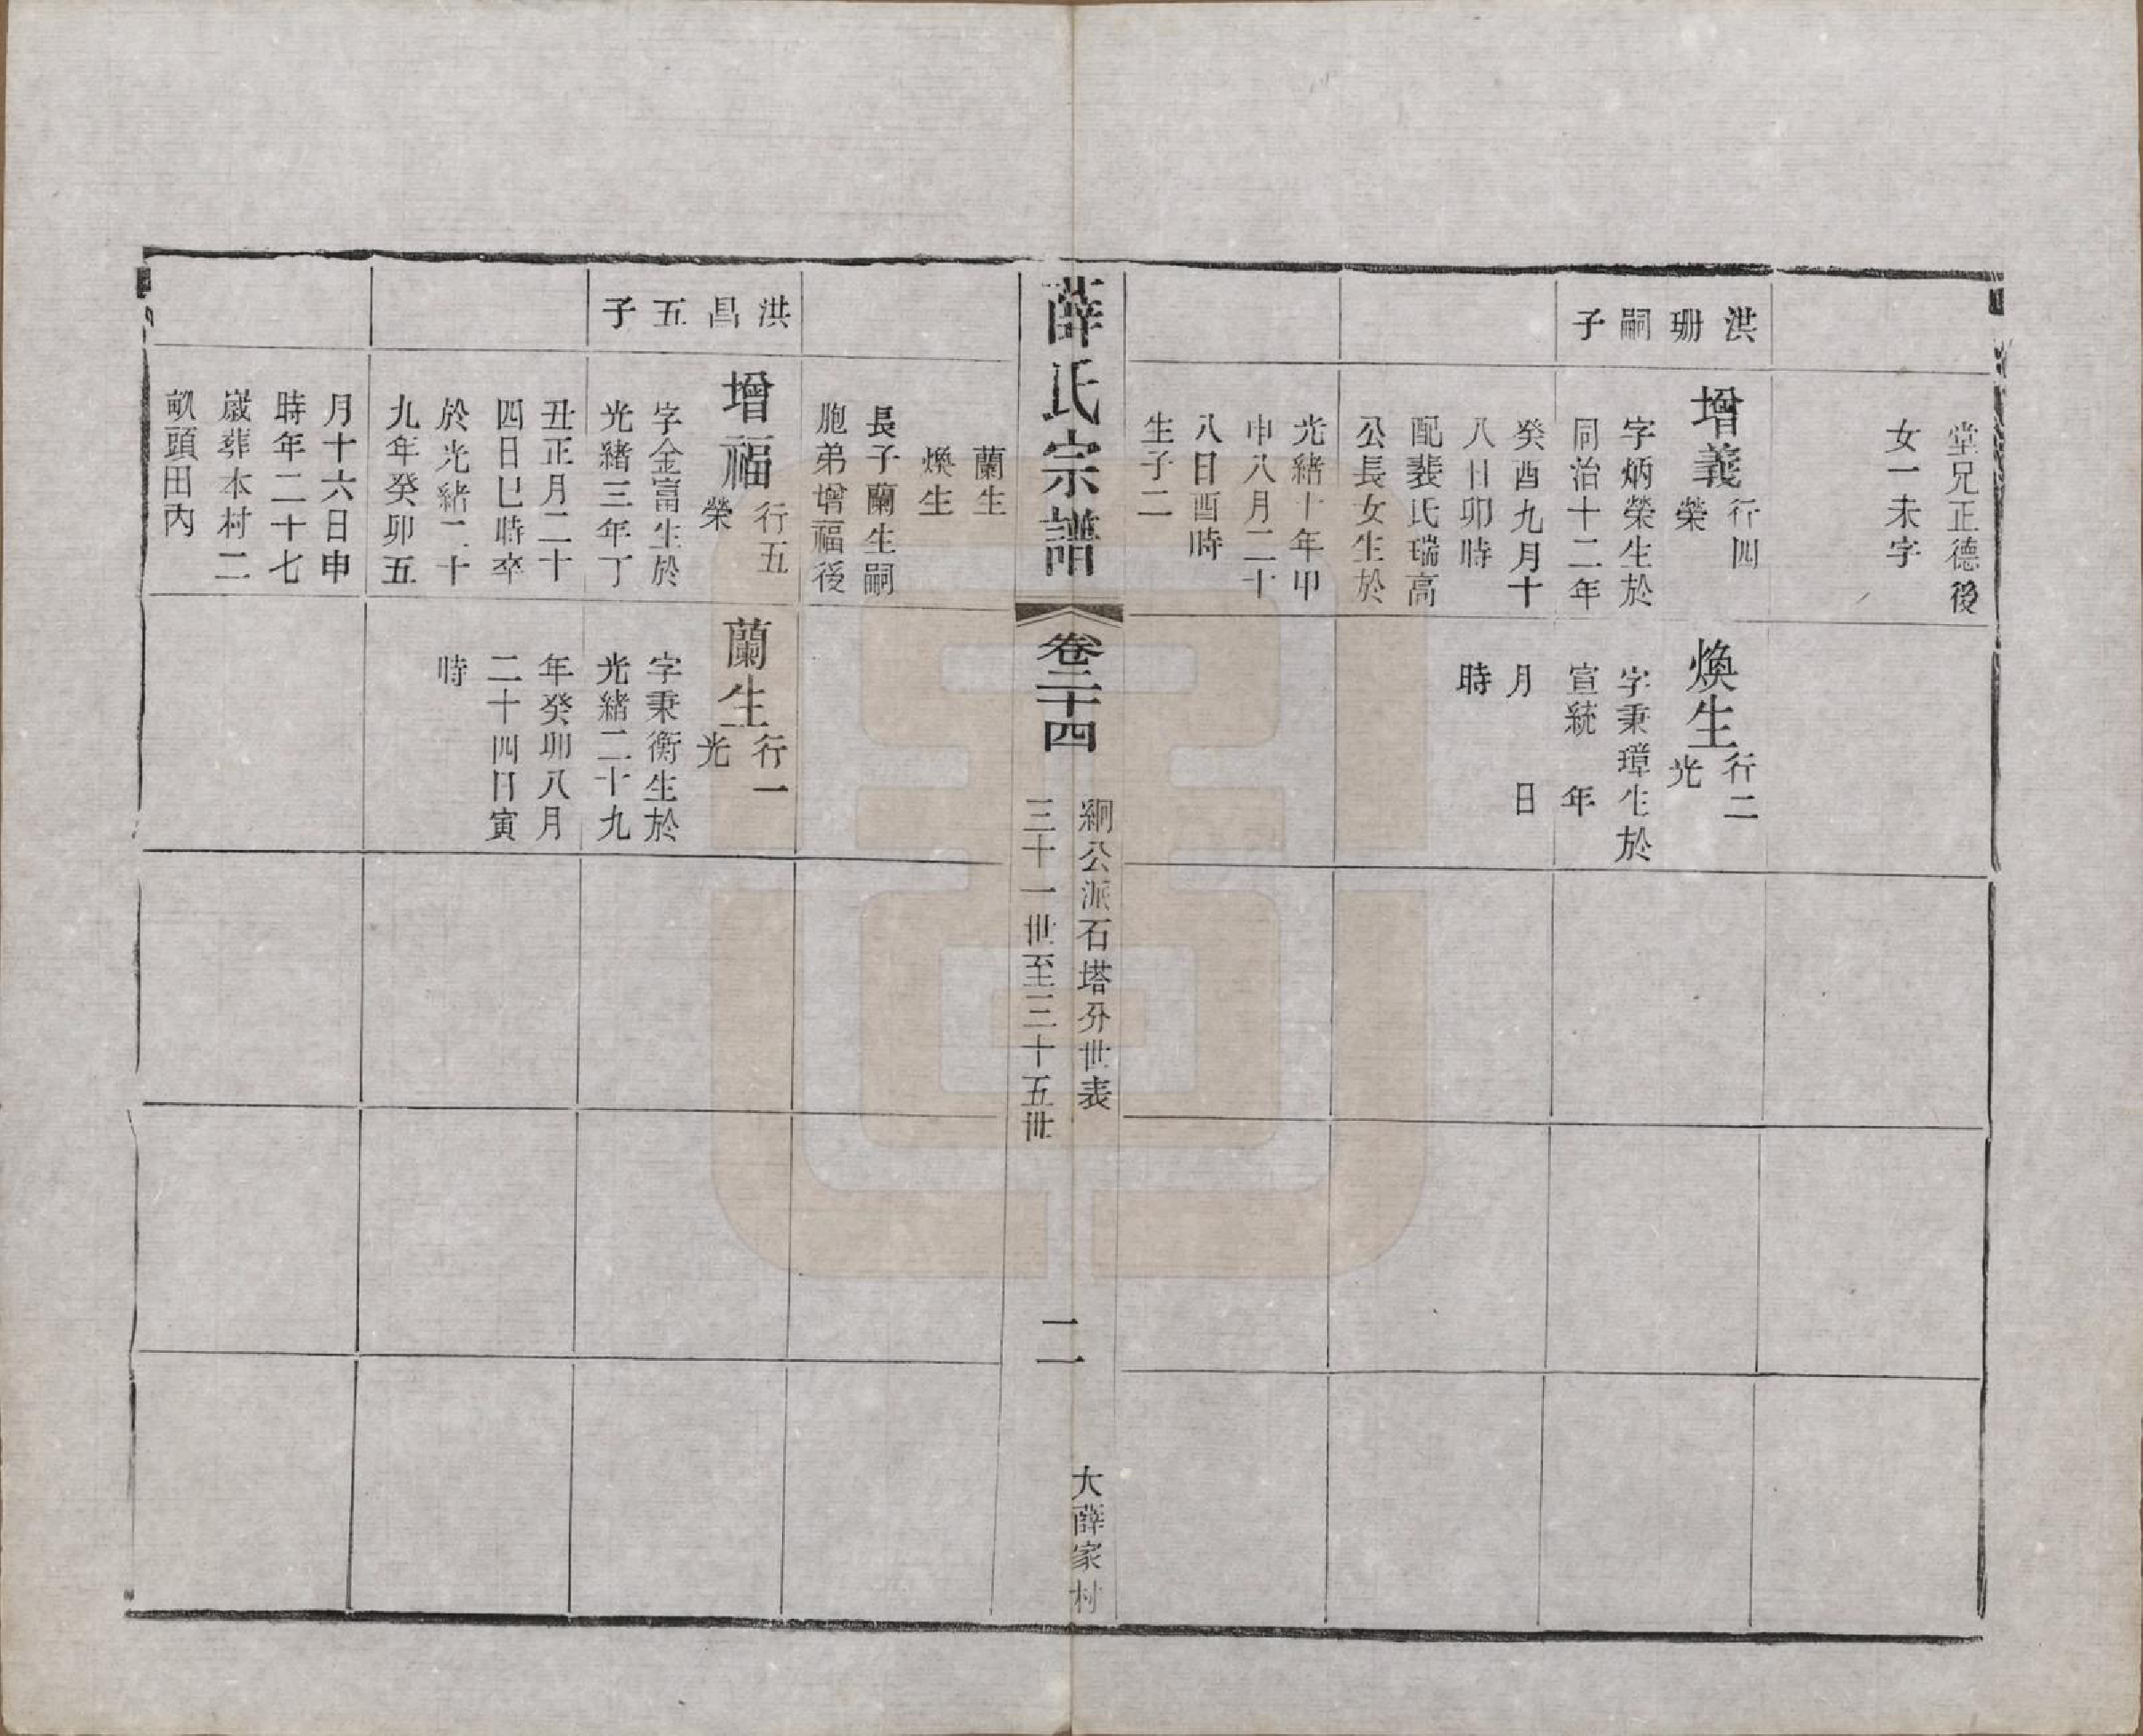 堂兄正德後
女一未字
洪珊嗣子
增義
行四
榮
字炳榮生於
同治十二年
癸酉九月十
八日卯時
配裴氏瑞高
公長女生於
光緒十年甲
申八月二十
八日酉時
生子二
煥生
行二
光
字秉璋生於
宣統　年
月　日
時
薛氏宗譜
卷二十四
絅公派石塔分世表
三十一世至三十五世
二
大薛家村
蘭生
煥生
長子蘭生嗣
胞弟增福後
洪昌五子
增福
行五
榮
字金富生於
光緒三年丁
丑正月二十
四日巳時卒
於光緒二十
九年癸卯五
月十六日申
時年二十七
歲葬本村二
畝頭田內
蘭生
行一
光
字秉衡生於
光緒二十九
年癸卯八月
二十四日寅
時